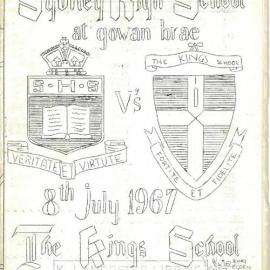 Sydney High School
at gowan brae
S H S
THE KINGS SCHOOL
V's
VERITATE ET VIRTUTE
FORTITER ET FIDELITER
8th july 1967
The Kings School